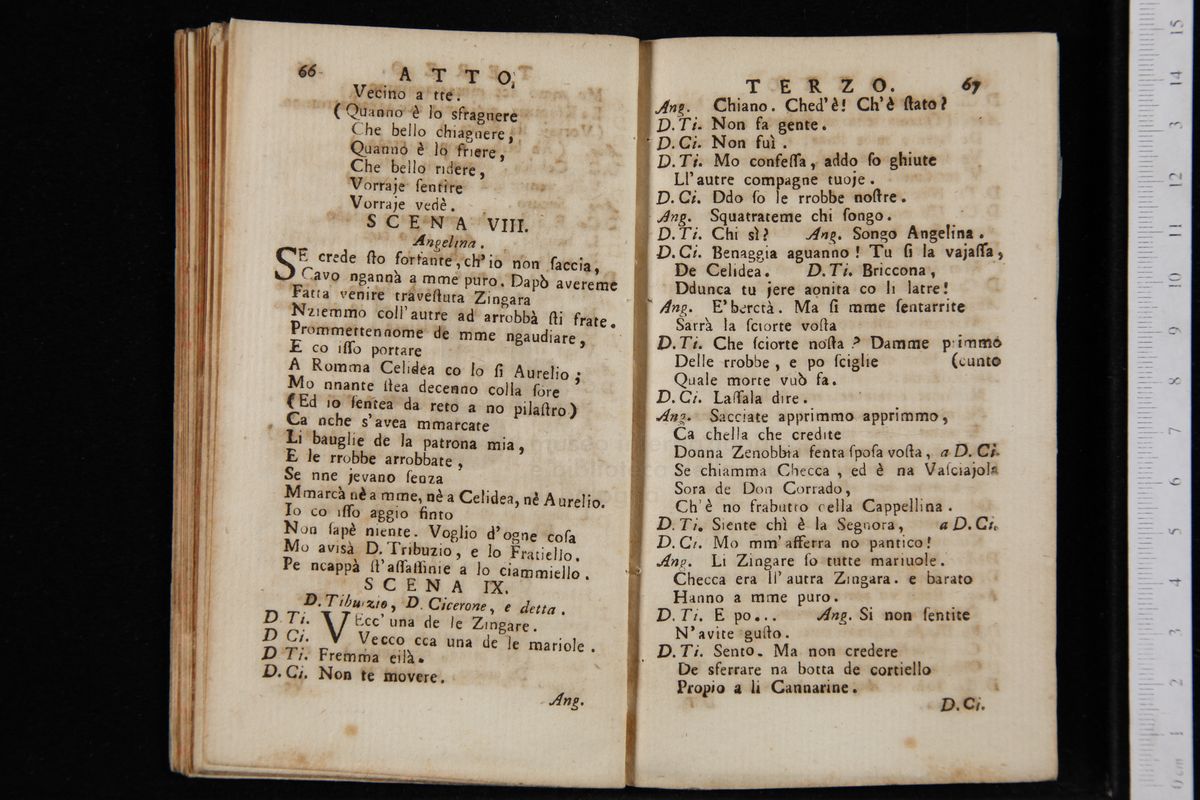 66
ATTO,
Vecino a tte.
(Quanno è lo sfragnere
Che bello chiagnere,
Quanno è lo friere,
Che bello ridere,
Vorraje ſentire
Vorraje vedè.
SCENA VIII.
Angelina.
SE crede ſto forfante, ch'io non faccia,
Cavo ngannà a mme puro. Dapò avereme
Fatta venire traveſtuta Zingara
Nziemmo coll'autre ad arrobbà ſti frate.
Prommettennome de mme ngaudiare,
E co iſſo portare
A Romma Celidea co lo ſi Aurelio;
Mo nnante ſtea decenno colla ſore
(Ed io ſentea da reto a no pilaſtro)
Ca nche s'avea mmarcate
Li bauglie de la patrona mia,
E le rrobbe arrobbate,
Se nne jevano ſenza
Mmarcà nè a mme, nè a Celidea, nè Aurelio.
Io co iſſo aggio finto
Non ſapè niente. Voglio d'ogne coſa
Mo avisà D. Tribuzio, e lo Fratiello.
Pe ncappà ſt'aſſaſſinie a lo ciammiello.
SCENA IX.
D. Tibuzio, D. Cicerone, e detta.
D Ti. VEcc' una de le Zingare.
D Ci. Vecco cca una de le mariole.
D Ti. Fremma eilà.
D. Ci. Non te movere.
Ang.
TERZO.
67
Ang. Chiano. Ched'è! Ch'è ſtato?
D. Ti. Non fa gente.
D. Ci. Non fuì.
D. Ti. Mo confeſſa, addo ſo ghiute
Ll'autre compagne tuoje.
D. Ci. Ddo ſo le rrobbe noſtre.
Ang. Squatrateme chi ſongo.
D. Ti. Chi sì? Ang. Songo Angelina.
D. Ci. Benaggia aguanno! Tu ſi la vajaſſa,
De Celidea. D. Ti. Briccona,
Ddunca tu jere aonita co li latre!
Ang. E' berctà. Ma ſi mme ſentarrite
Sarrà la ſciorte voſta
D. Ti. Che ſciorte noſta? Damme primmo
Delle rrobbe, e po ſciglie (cunto
Quale morte vuò fa.
D. Ci. Laſſala dire.
Ang. Sacciate apprimmo apprimmo,
Ca chella che credite
Donna Zenobbia fenta ſpoſa voſta, a D. Ci.
Se chiamma Checca, ed è na Vaſciajola
Sora de Don Corrado,
Ch'è no frabutto della Cappellina.
D. Ti. Siente chì è la Segnora, a D. Ci.
D. Ci. Mo mm'afferra no pantico!
Ang. Li Zingare ſo tutte mariuole.
Checca era ll'autra Zingara. e barato
Hanno a mme puro.
D. Ti. E po... Ang. Si non ſentite
N'avite guſto.
D. Ti. Sento. Ma non credere
De sferrare na botta de cortiello
Propio a li Cannarine.
D. Ci.